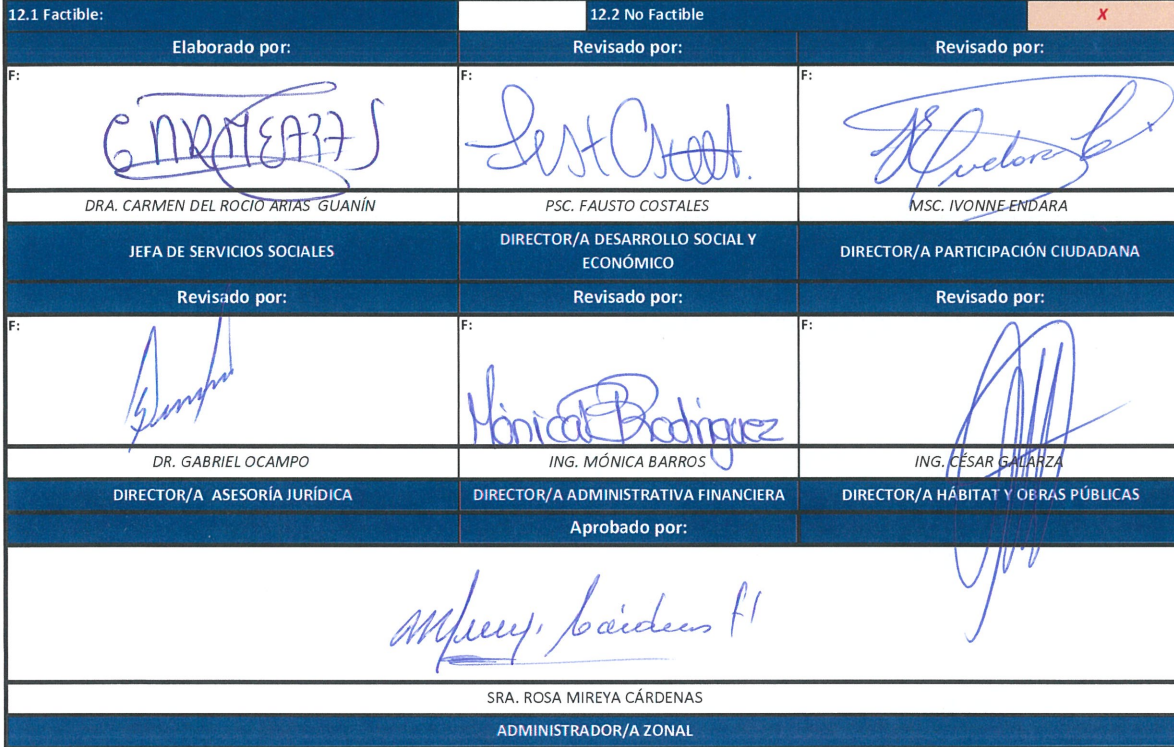 12.1 Factible: 12.2 No Factible X
Elaborado por: Revisado por: Revisado por:
F: F: F:
DRA. CARMEN DEL ROCIO ARIAS GUANÍN PSC. FAUSTO COSTALES MSC. IVONNE ENDARA
JEFA DE SERVICIOS SOCIALES DIRECTOR/A DESARROLLO SOCIAL Y
ECONÓMICO DIRECTOR/A PARTICIPACIÓN CIUDADANA
Revisado por: Revisado por:
F: F: F:
Mónica Rodríguez
DR. GABRIEL OCAMPO ING. MÓNICA BARROS ING. CÉSAR GALARZA
DIRECTOR/A ASESORÍA JURÍDICA DIRECTOR/A ADMINISTRATIVA FINANCIERA DIRECTOR/A HÁBITAT Y OBRAS PÚBLICAS
Revisado por:
Aprobado por:
SRA. ROSA MIREYA CÁRDENAS
ADMINISTRADOR/A ZONAL